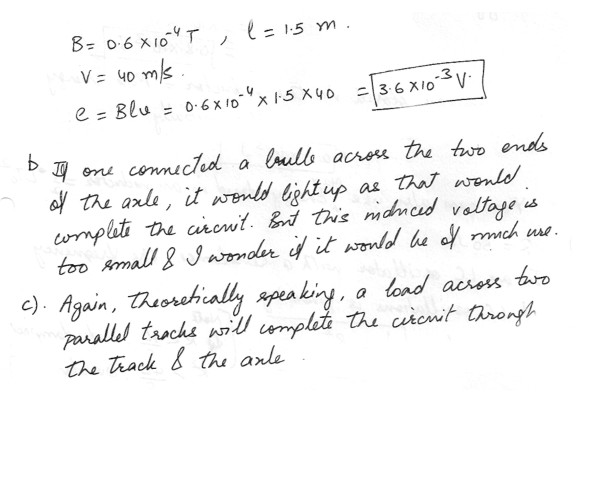 B = 0.6 X 10⁻⁴ T , l = 1.5 m .
V = 40 m/s .
e = Blv = 0.6 x 10⁻⁴ x 1.5 x 40 = 3.6 x 10⁻³ V.
b. If one connected a bulb across the two ends
of the axle, it would light up as that would
complete the circuit. But this induced voltage is
too small & I wonder if it would be of much use.
c). Again, theoretically speaking, a load across two
parallel tracks will complete the circuit through
the track & the axle .